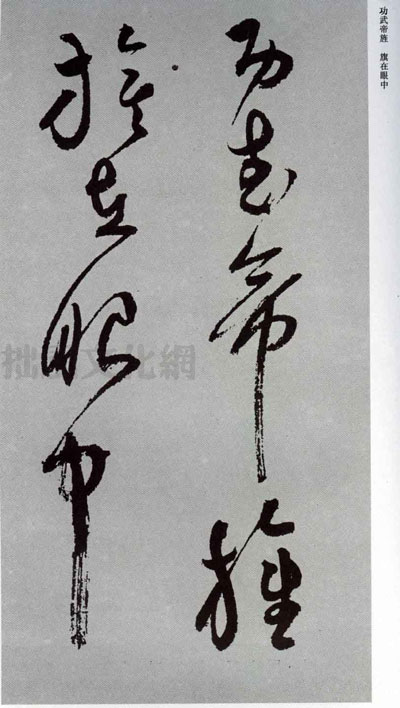 功武帝旌　旗在眼中
功武帝旌
旗在眼中
拙文化網